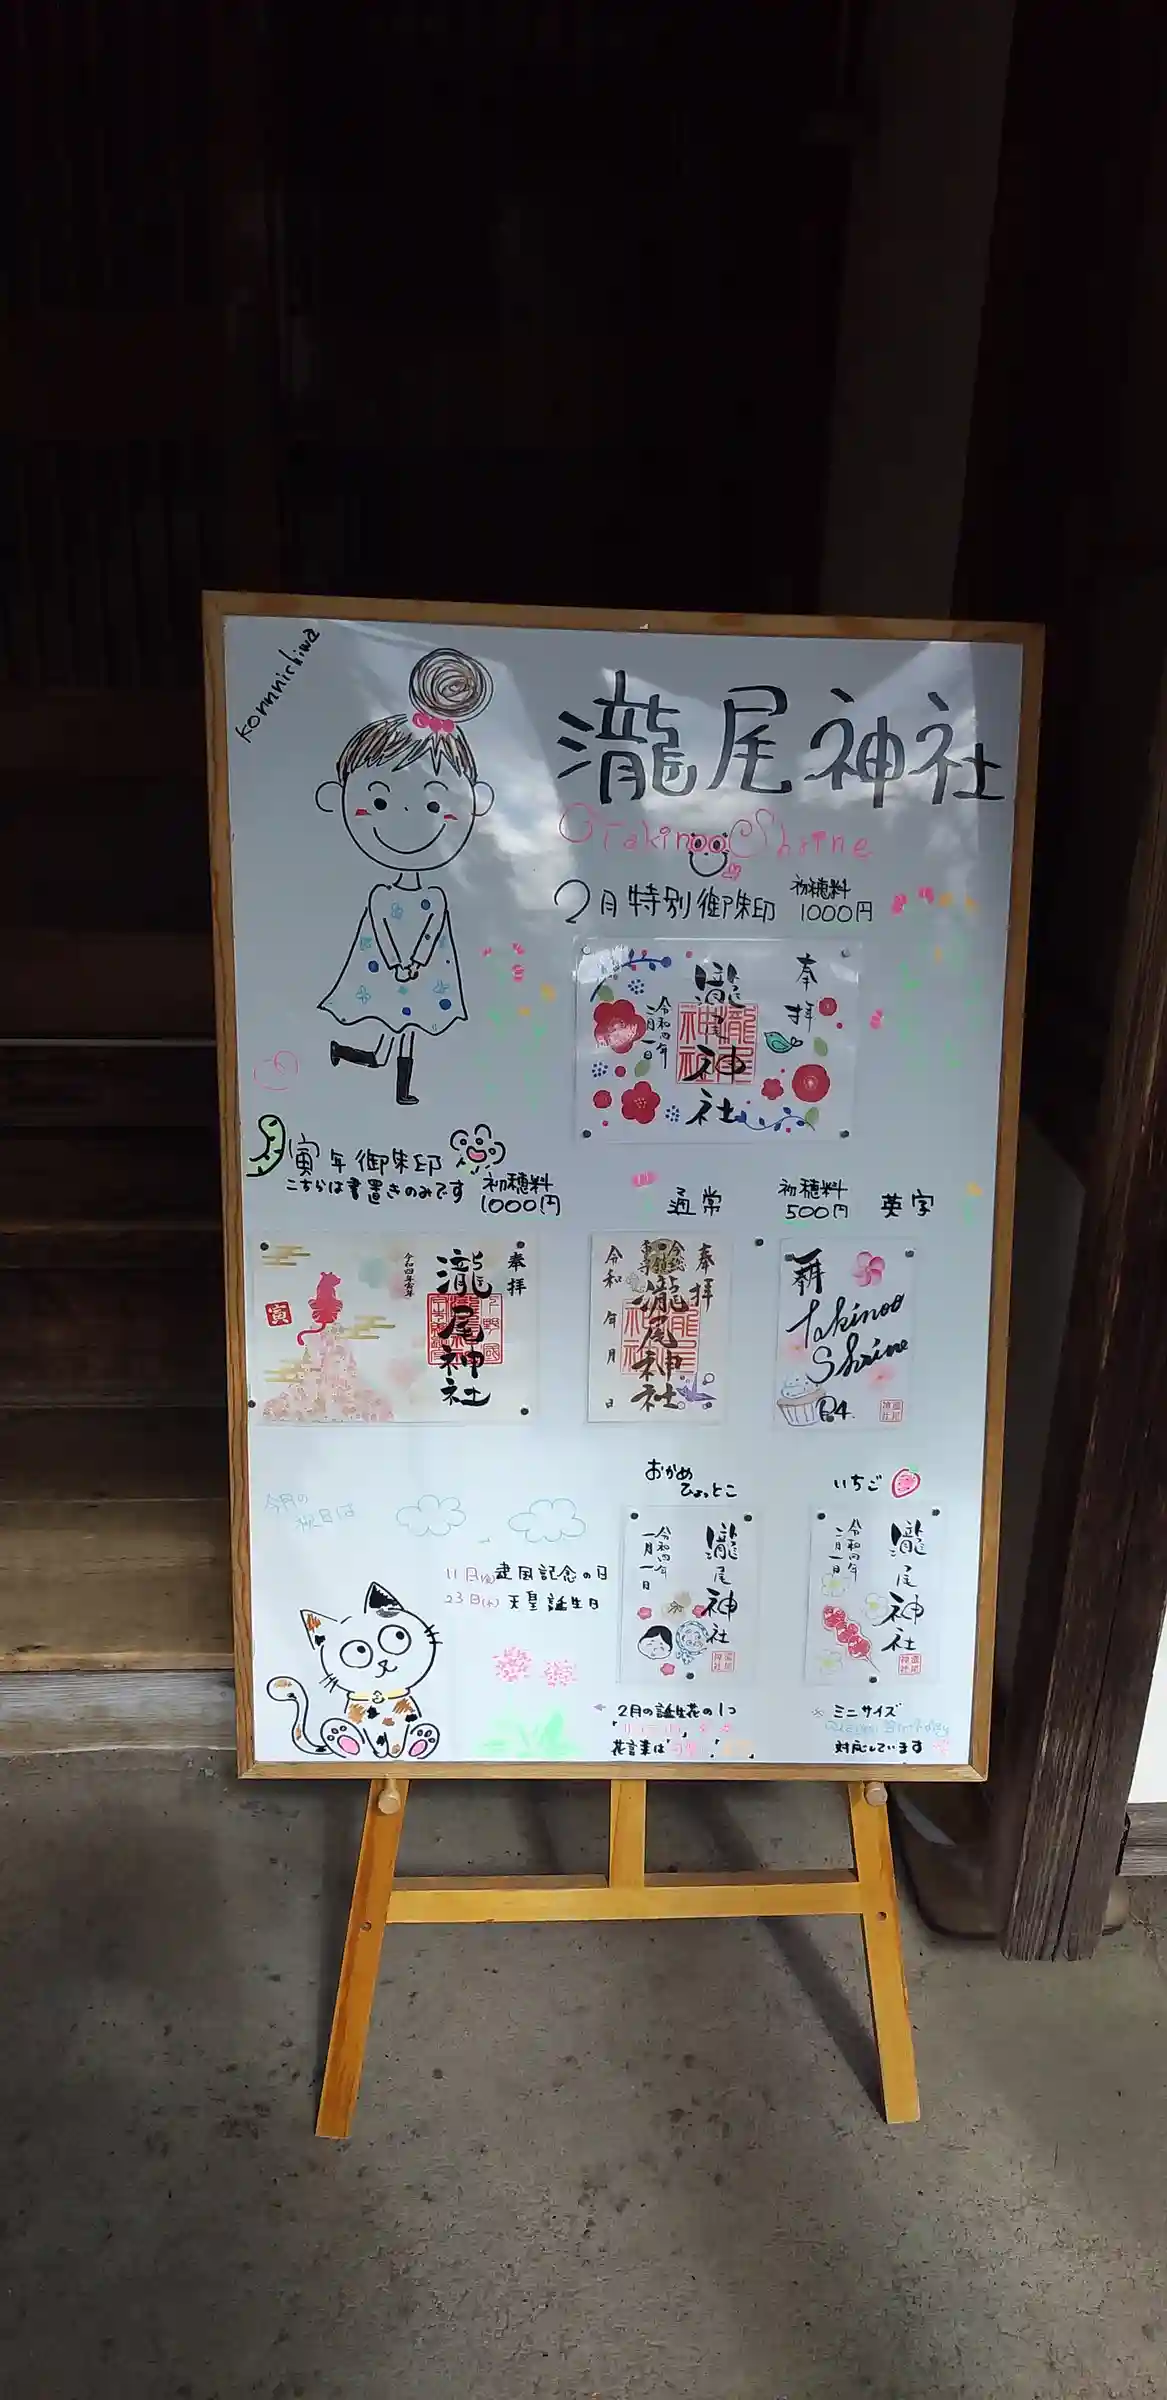 konnnichiwa
瀧尾神社
Takinoo Shrine
2月特別御朱印 初穂料
1000円
奉拝
瀧尾神社
令和四年
二月一日
寅年御朱印
こちらは書置きのみです 初穂料
1000円
奉拝
瀧尾神社
令和四年寅年
寅
通常
初穂料
500円
英字
奉拝
瀧尾神社
令和 年 月 日
Takinoo
Shrine
R4.
おかめ
ひょっとこ
いちご
瀧尾神社
令和四年
二月一日
瀧尾神社
令和四年
二月一日
今月の
祝日は
11日(金)建国記念の日
23日(水)天皇誕生日
2月の誕生花の1つ
花言葉は
※ ミニサイズ
Birthday
対応しています